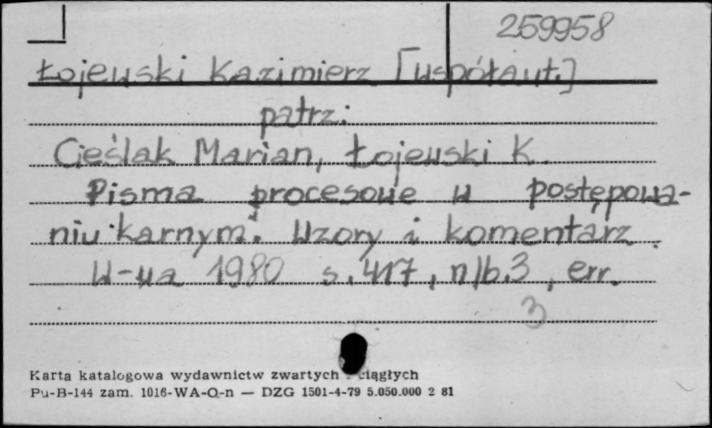 259958
Łojewski Kazimierz [współaut.]
patrz:
Cieślak Marian, Łojewski K.
Pisma procesowe w postępowa-
niu karnym. Wzory i komentarz.
W-wa 1980 s. 417, nlb. 3, err.
3
Karta katalogowa wydawnictw zwartych i ciągłych
Pu-B-144 zam. 1016-WA-O-n — DZG 1501-4-79 5.050.000 2 81